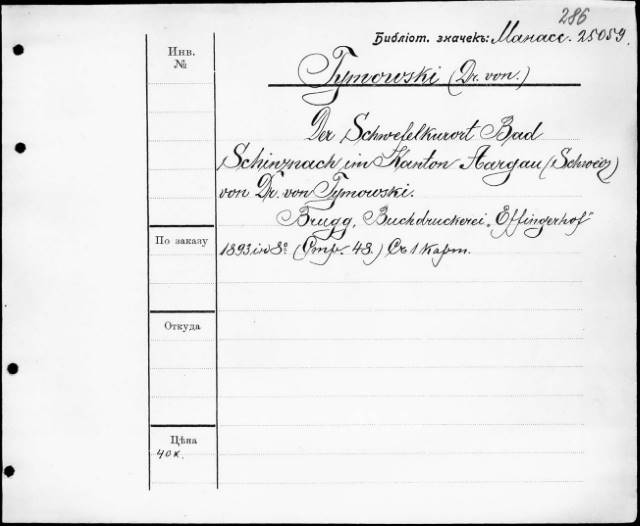 286
Библіот. значекъ: Манасс. 25059.
Инв.
№
Tymowski (Dr. von.)
Der Schwefelkurort Bad
Schinznach im Kanton Aargau (Schweiz)
von Dr. von Tymowski.
Brugg, Buchdruckerei „Effingerhof“
По заказу
1893 in 8º. (Стр. 48.) Съ 1 карт.
Откуда
Цѣна
40 к.